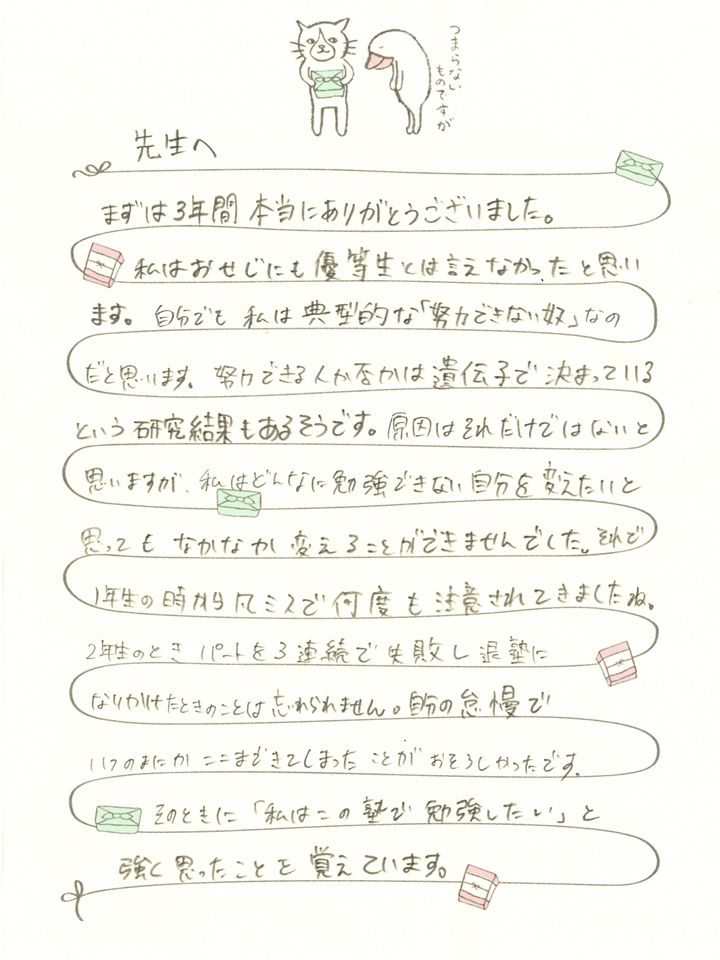 つまらない
ものですが
先生へ
まずは3年間 本当にありがとうございました。
私はおせじにも優等生とは言えなかったと思い
ます。自分でも 私は典型的な「努力できない奴」なの
だと思います。努力できる人か否かは遺伝子で決まっている
という研究結果もあるそうです。原因はそれだけではないと
思いますが、私はどんなに勉強できない自分を変えたいと
思っても なかなか変えることができませんでした。それで
1年生の時から凡ミスで何度も注意されてきましたね。
2年生のとき パートを3連続で失敗し退塾に
なりかけたときのことは忘れられません。自分の怠慢で
いつのまにかここまできてしまったことがおそろしかったです。
そのときに「私はこの塾で勉強したい」と
強く思ったことを覚えています。